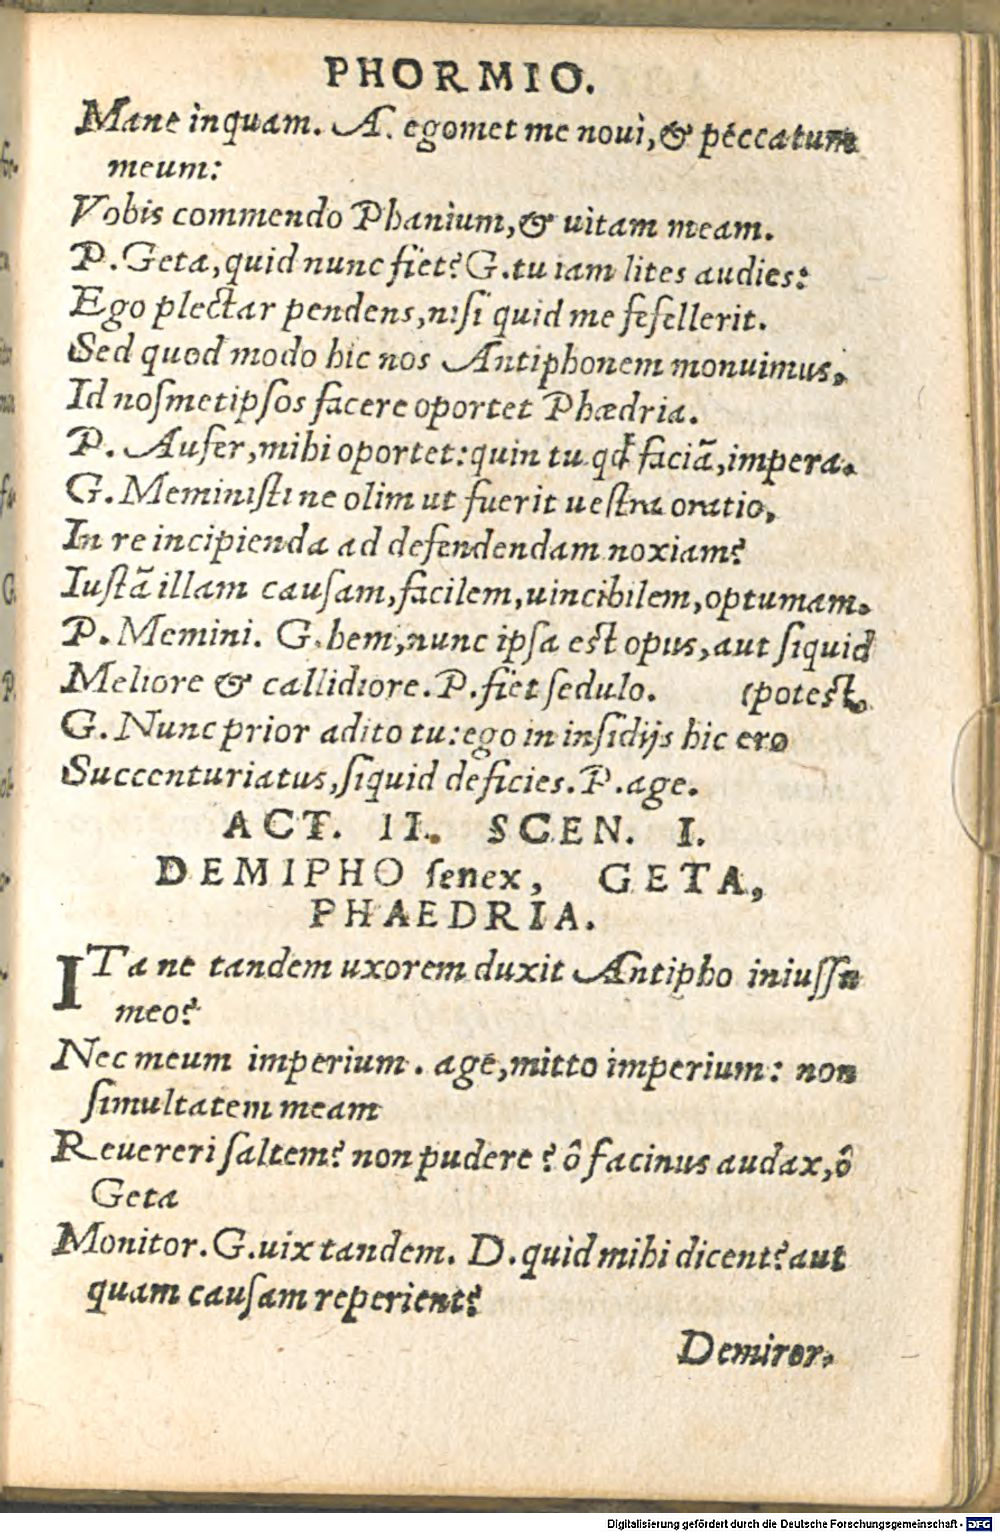 PHORMIO.
Mane inquam. A. egomet me noui, & peccatum
meum:
Vobis commendo Phanium, & uitam meam.
P. Geta, quid nunc fiet? G. tu iam lites audies:
Ego plectar pendens, nisi quid me fefellerit.
Sed quod modo hic nos Antiphonem monuimus,
Id noſmetipſos facere oportet Phædria.
P. Aufer, mihi oportet: quin tu qđ faciā, impera.
G. Meministi ne olim ut fuerit uestra oratio,
In re incipienda ad defendendam noxiam?
Iustā illam cauſam, facilem, uincibilem, optumam.
P. Memini. G. hem, nunc ipſa est opus, aut ſiquid
Meliore & callidiore. P. fiet ſedulo. (potest,
G. Nunc prior adito tu: ego in inſidijs hic ero
Succenturiatus, ſiquid deficies. P. age.
ACT. II. SCEN. I.
DEMIPHO ſenex, GETA,
PHAEDRIA.
ITa ne tandem uxorem duxit Antipho iniuſſu
meo?
Nec meum imperium. age, mitto imperium: non
ſimultatem meam
Reuereri ſaltem? non pudere? ô facinus audax, ô
Geta
Monitor. G. uix tandem. D. quid mihi dicent? aut
quam cauſam reperient?
Demiror.
Digitalisierung gefördert durch die Deutsche Forschungsgemeinschaft - DFG